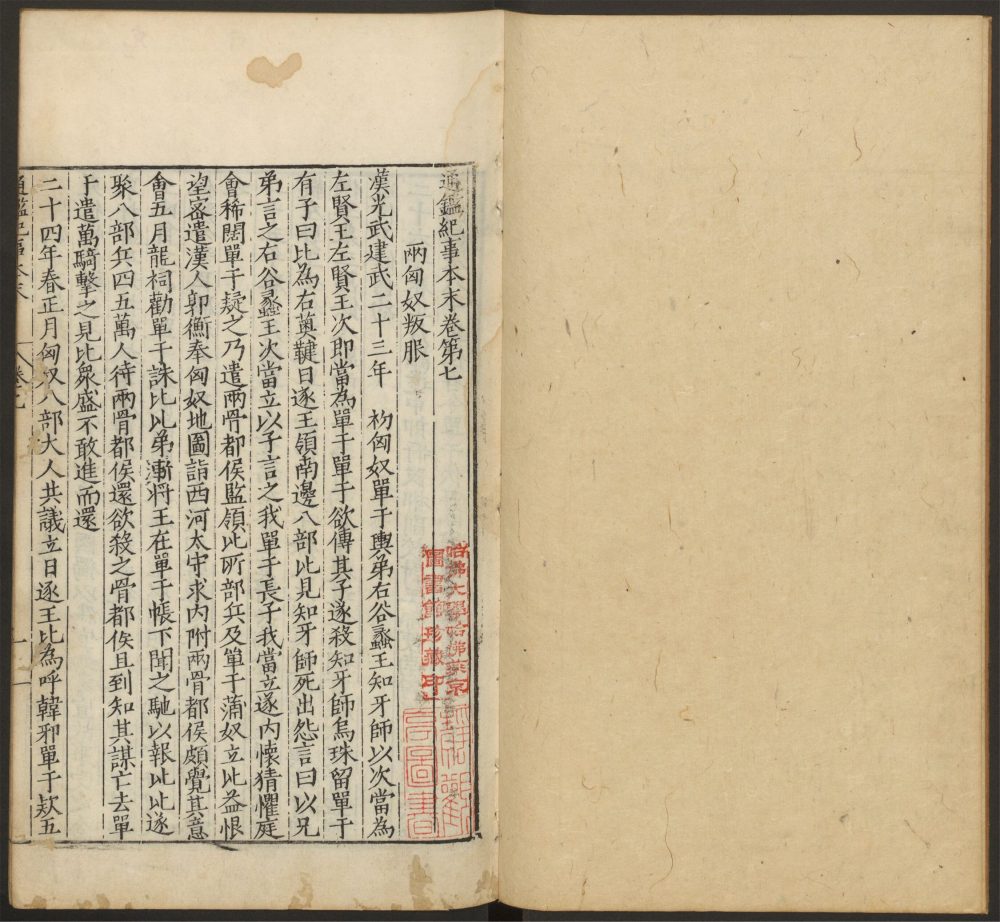 通鑑紀事本末卷第七
兩匈奴叛服
漢光武建武二十三年 初匈奴單于輿弟右谷蠡王知牙師以次當為
左賢王左賢王次即當為單于單于欲傳其子遂殺知牙師烏珠留單于
有子曰比為右薁鞬日逐王領南邊八部比見知牙師死出怨言曰以兄
弟言之右谷蠡王次當立以子言之我單于長子我當立遂內懷猜懼庭
會稀闊單于疑之乃遣兩骨都侯監領比所部兵及單于蒲奴立比益恨
望密遣漢人郭衡奉匈奴地圖詣西河太守求內附兩骨都侯頗覺其意
會五月龍祠勸單于誅比比弟漸將王在單于帳下聞之馳以報比比遂
聚八部兵四五萬人待兩骨都侯還欲殺之骨都侯且到知其謀亡去單
于遣萬騎擊之見比眾盛不敢進而還
二十四年春正月匈奴八部大人共議立日逐王比為呼韓邪單于款五
通鑑紀事本末 卷七 一
哈佛大學哈佛燕京
圖書館珍藏印